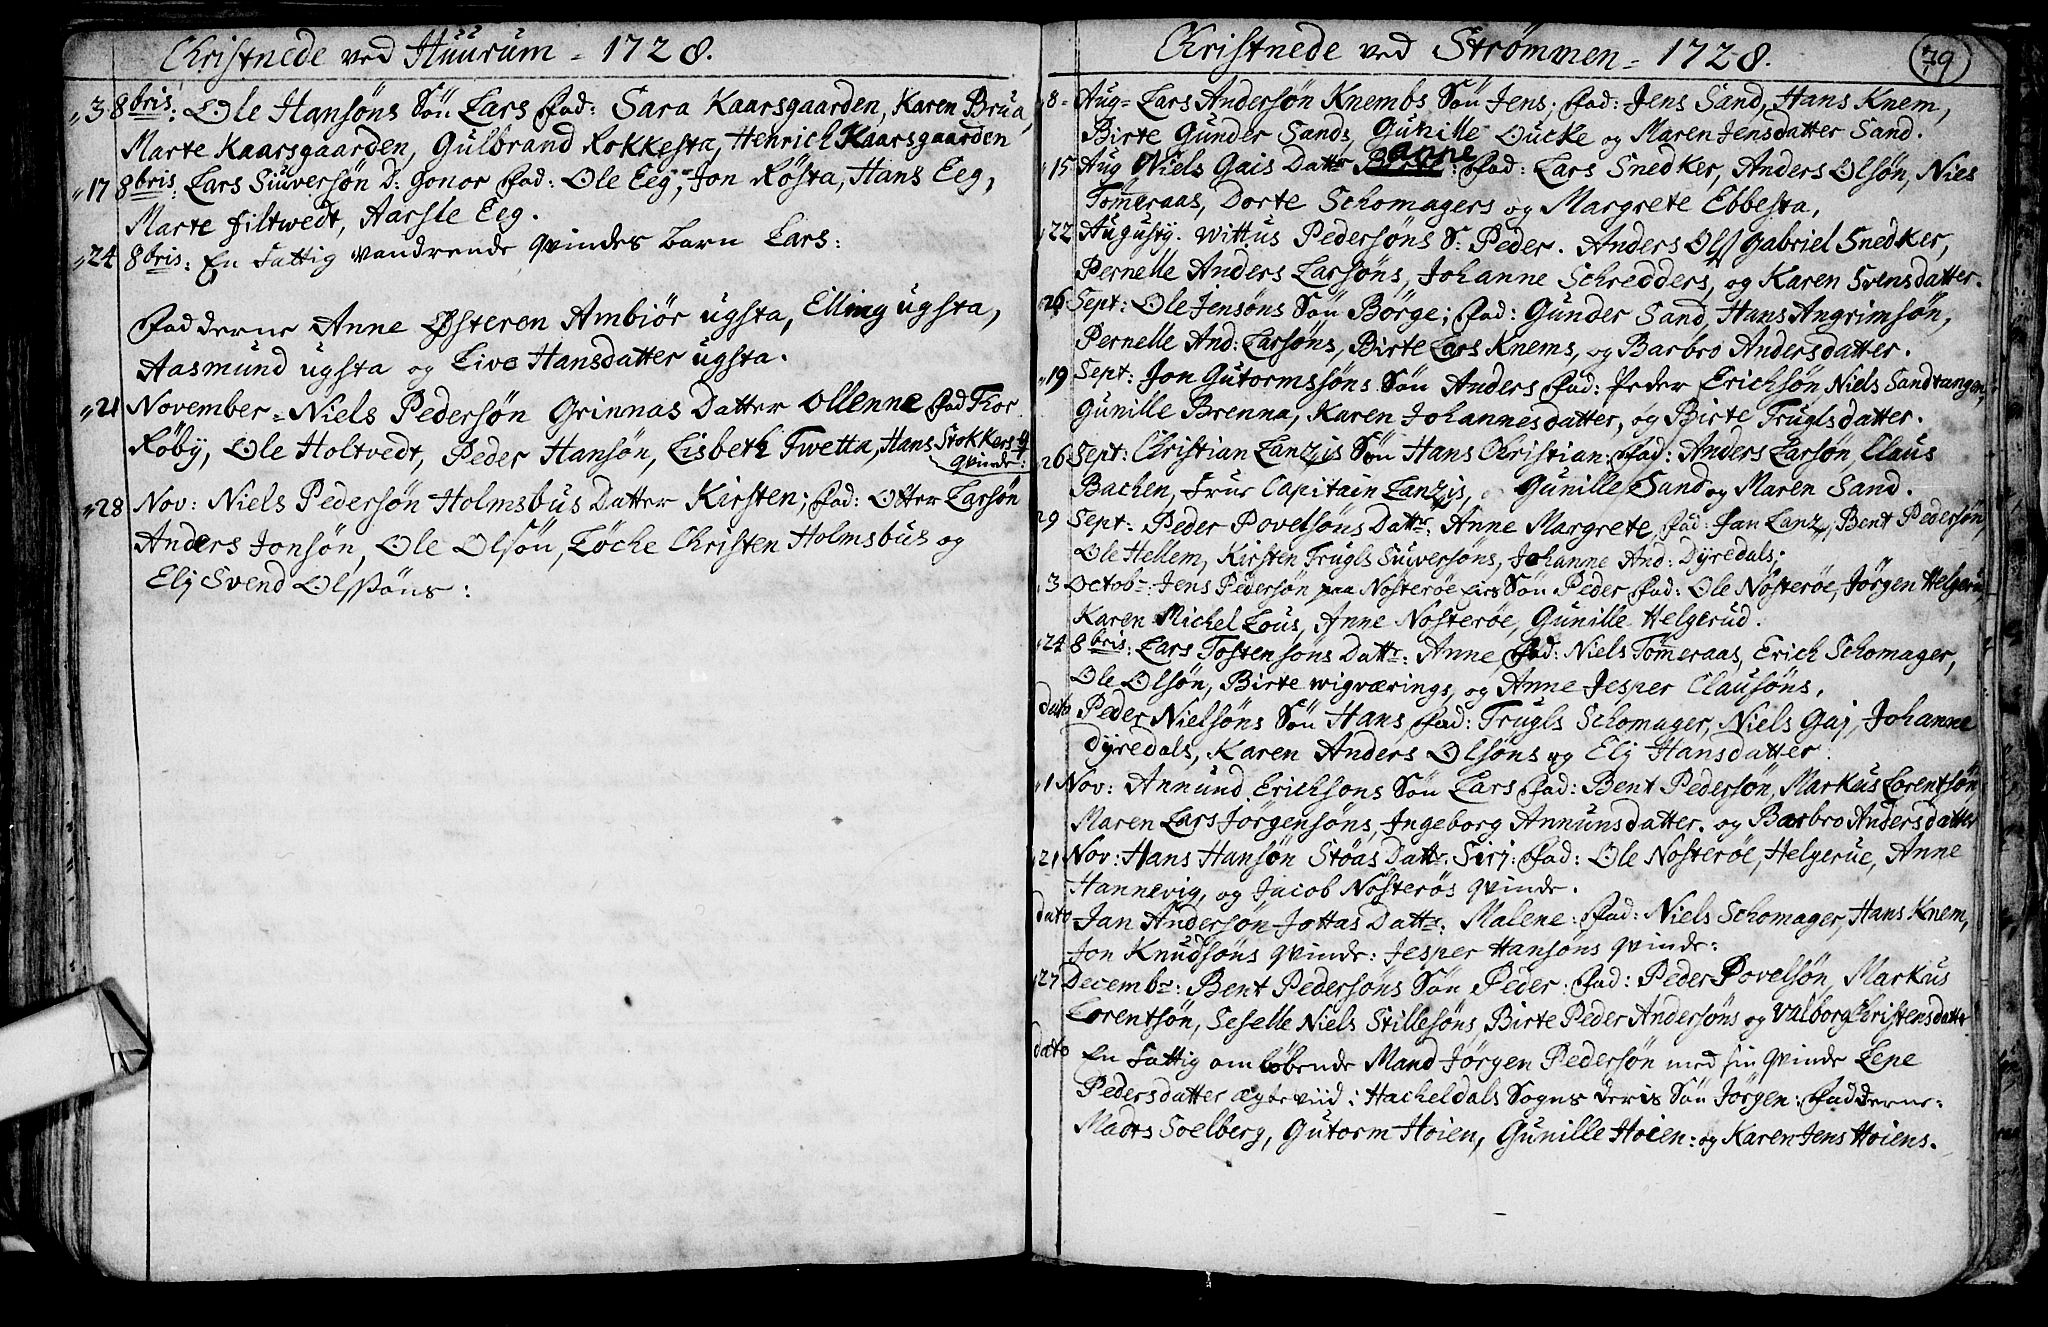 Christnede ved Huurum = 1728.
"3 8bris: Ole Hansøns Søn Lars Fad: Sara Kaarsgaarden, Karen Brua,
Marte Kaarsgaarden, Gulbrand Rokkesta, Henrich Kaarsgaarden
"17 8bris: Lars Siuversøn D: Gonor Fad: Ole Eeg, Jon Røsta, Hans Eeg,
Marte Filtwedt, Aarsle Eeg.
"24 8bris: En Fattig vandrende qvindes barn Lars:
Fadderne Anne Østeren Ambiør ugsta, Elling ugsta,
Aasmund ugsta og Live Hansdatter ugsta.
"21 November = Niels Pedersøn Grinnas Datter Ollenne Fad Thor
Røby, Ole Holtvedt, Peder Hansøn, Lisbeth Twetta, Hans Stokkers
qvinde:
"28 Nov: Niels Pedersøn Holmsbus Datter Kirsten; Fad: Otter Larsøn
Anders Jonsøn, Ole Olsøn, Løcke Christen Holmsbus og
Elj Svend Olssøns:
Christnede ved Strømmen = 1728.
79
"8 = Aug = Lars Andersøn Knembs Søn Jens; Fad: Jens Sand, Hans Knem,
Birte Gunder Sands, Gunille Oucke og Maren Jensdatter Sand.
"15 Aug Niels Gais Dattr Anne: Fad: Lars Snedker, Anders Olsøn, Niels
Tømeraas, Dorte Schomagers og Margrete Ebbesta.
"22 Augusty. Wittus Pedersøns S: Peder. Anders Ols Gabriel Snedker,
Pernelle Anders Larsøns, Johanne Schredders, og Karen Svensdatter.
Sept: Ole Jensøns Søn Børge; Fad: Gunder Sand, Hans Angrimsøn,
Pernelle And: Larsøns, Birte Lars Knems, og Barbro Andersdatter.
"19 Sept: Jon Gutormssøns Søn Anders Fad: Peder Erichsøn Niels Sandtangen,
Gunille Brenna, Karen Johannesdatter, og Birte Truglsdatter.
"26 Sept: Christian Lanzis Søn Hans Christian: Fad: Anders Larsøn Claus
Bachen, Frue Capitain Lanzis, Gunille Sand og Maren Sand.
29 Sept: Peder Povelsøns Dattr. Anne Margrete, Fad: Jan Lanz, Bent Pedersøn,
Ole Hellem, Kirsten Trugls Siuversøns, Johanne And: Dyredals;
3 Octobr: Jens Pedersøn paa Nosterøe Søn Peder Fad: Ole Nosterøe, Jørgen Helgerud,
Karen Michel Lous, Anne Nosterøe, Gunille Helgerud.
"24 8bris: Lars Tostensøns Dattr: Anne, Fad: Niels Tømeraas, Erich Schomager,
Ole Olsøn, Birte wigværings, og Anne Jesper Clausøns.
dato Peder Nielsøns Søn Hans Fad: Trugls Schomager, Niels Gaj, Johanne
Dyredals, Karen Anders Olsøns og Elj Hansdatter.
"1 Nov: Annund Ericksøns Søn Lars Fad: Bent Pedersøn, Markus Lorentsøn
Maren Lars Jørgensøns, Ingeborg Annunsdatter, og Barbro Andersdatter
"21 Nov: Hans Hansøn Støas Dattr. Sirj: Fad: Ole Nosterøe, Helgerue, Anne
Hannevig, og Jacob Nosterøs qvinde.
dato Jan Andersøn Jottas Dattr. Malene: Fad: Niels Schomager, Hans Knem,
Jon Knudsøns qvinde: Jesper Hansøns qvinde:
"27 Decembr: Bent Pedersøns Søn Peder: Fad: Peder Povelsøn, Markus
Lorentsøn, Seselle Niels Stillesøns Birte Peder Andersøns og Valborg Christensdatter
dato En Fattig omløbende Mand Jørgen Pedersøn med sin qvinde Lene
Pedersdatter ægte viid i Hacheldals Sogn deris Søn Jørgen: Fadderne:
Madts Soelberg, Gutorm Hoien, Gunille Hoien: og Karen Jens Hoiens.